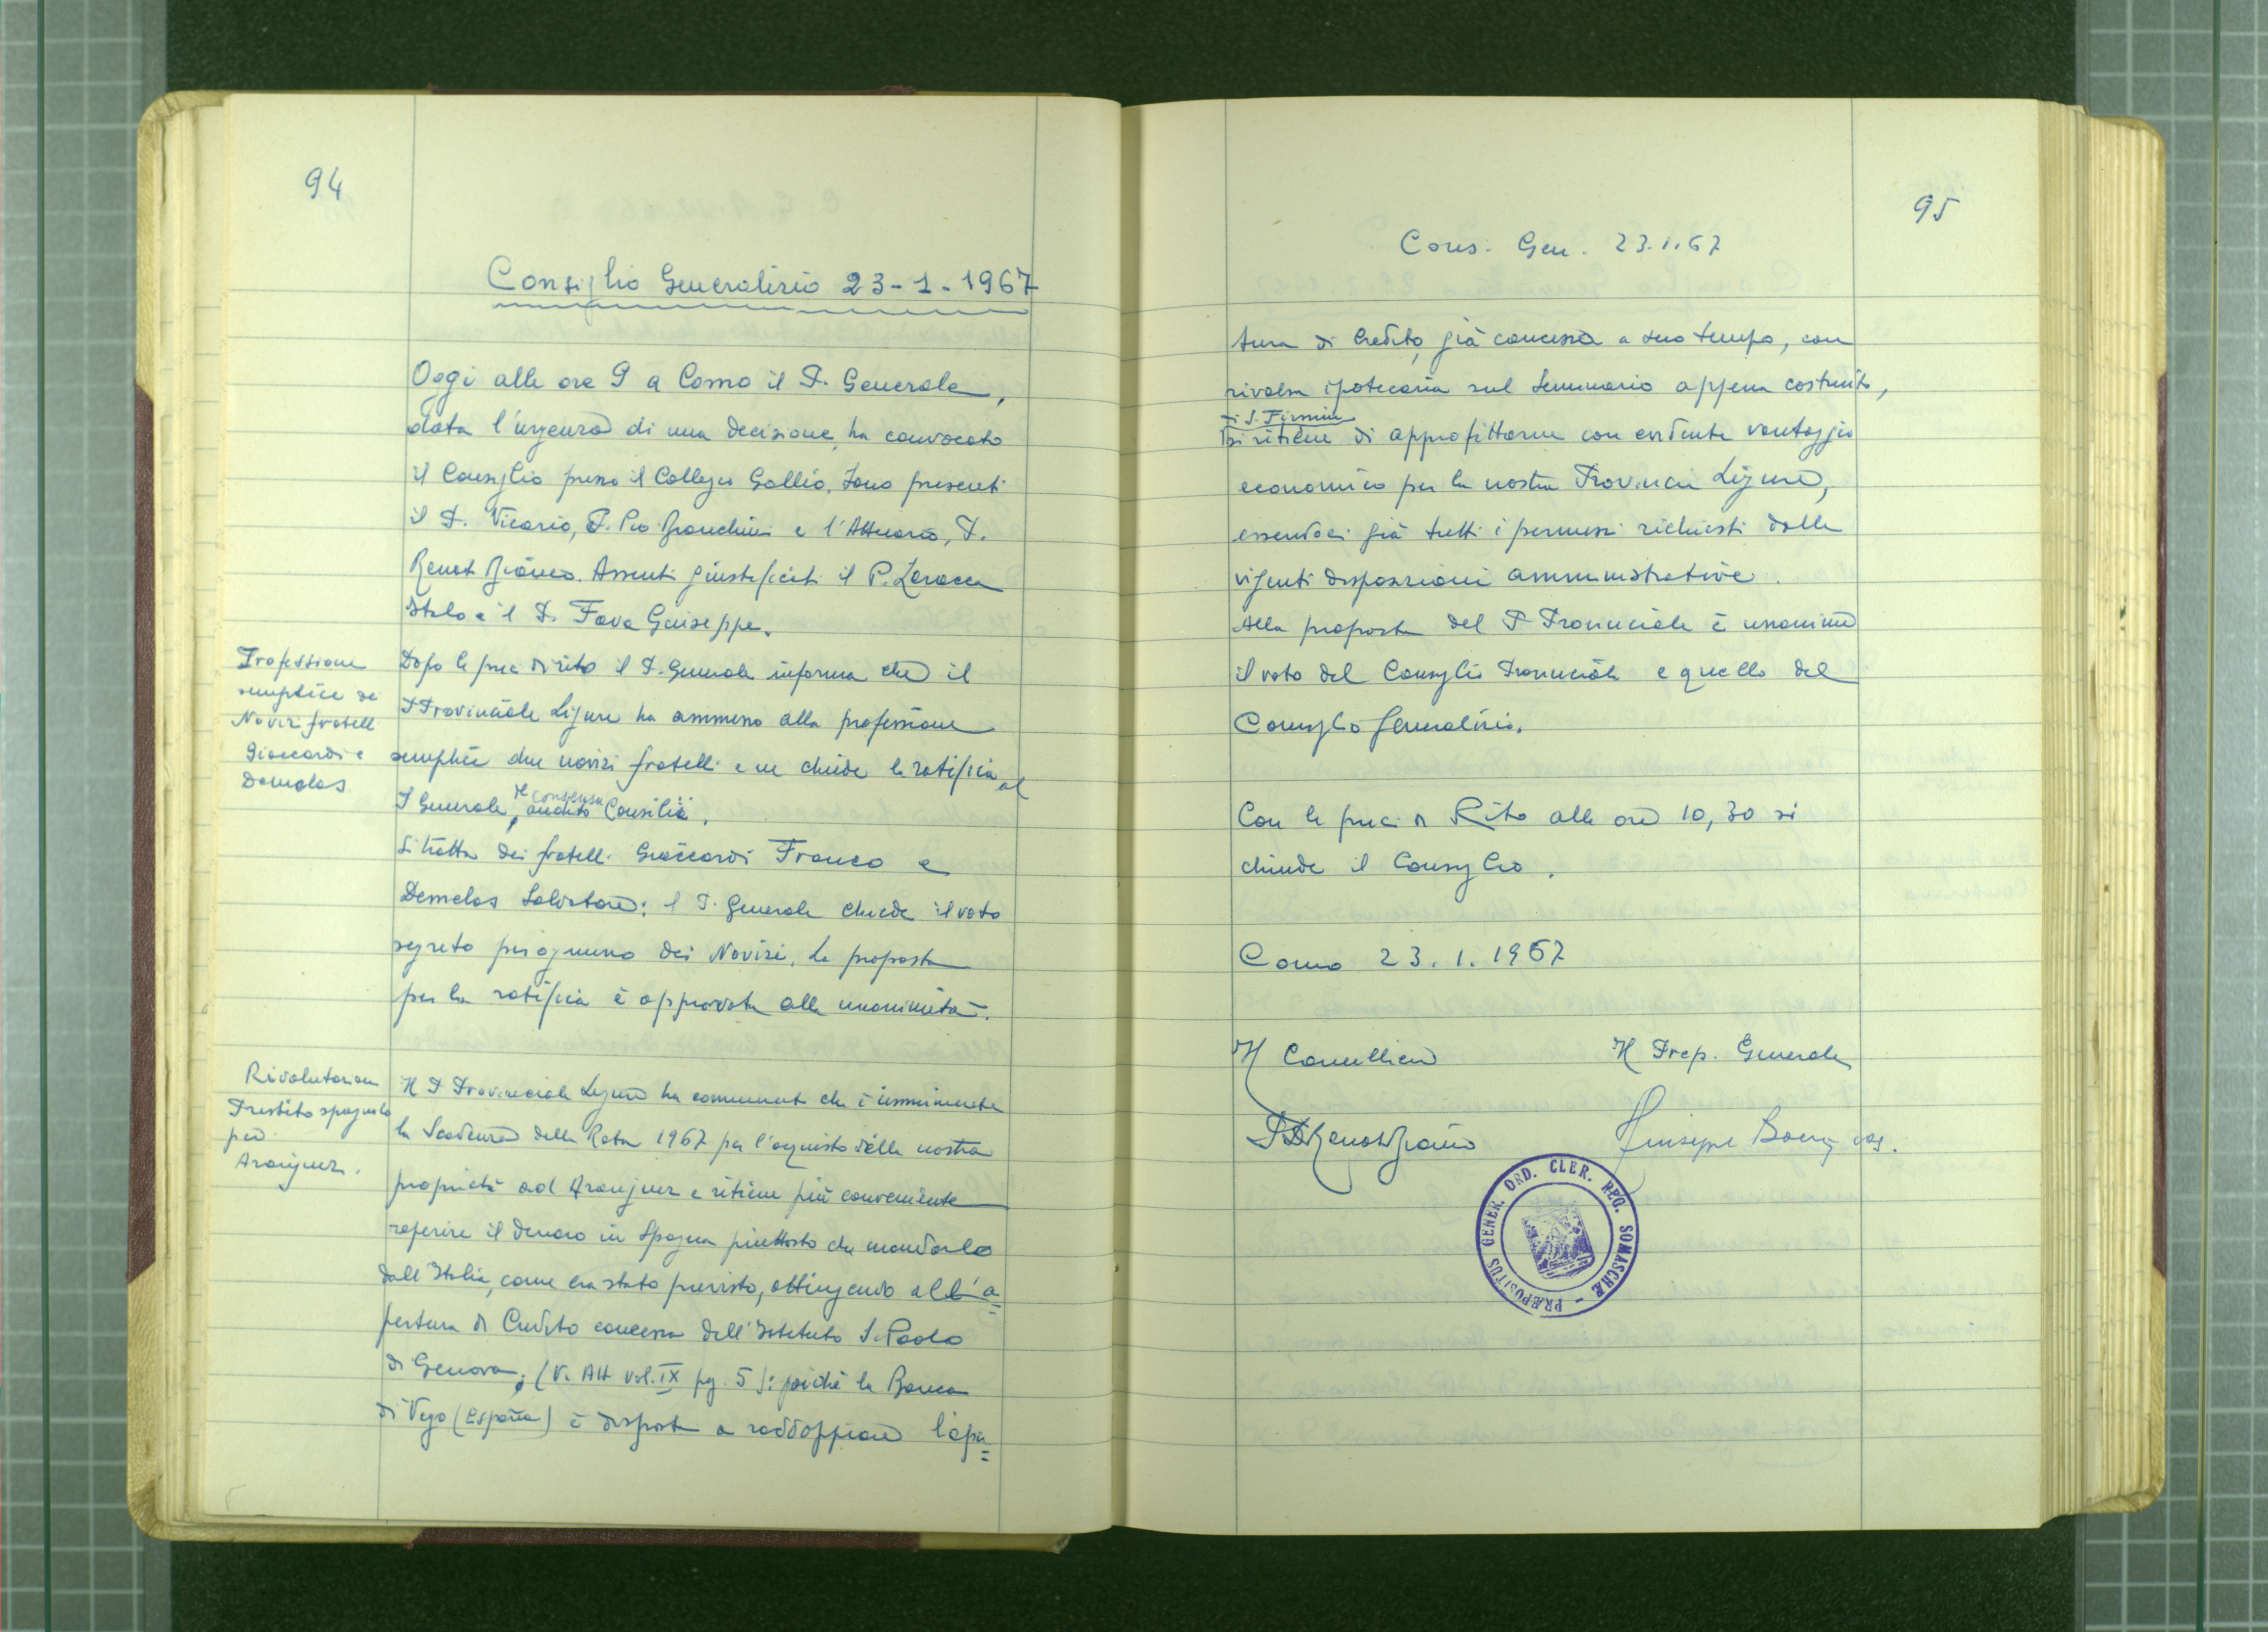 94
Consiglio Generalizio 23-1-1967
Oggi alle ore 9 a Como il P. Generale,
data l'urgenza di una decisione, ha convocato
il Consiglio presso il Collegio Gallio. Sono presenti
il P. Vicario, P. Pio Bianchini e l'Attuario, P.
Renato Bianco. Assenti giustificati il P. Laracca
Italo e il P. Fava Giuseppe.
Professione
semplice dei
Novizi fratelli
Giaccardi e
Demelas
Dopo le preci di rito il P. Generale informa che il
P. Provinciale Ligure ha ammesso alla professione
semplice due novizi fratelli e ne chiede la ratifica al
P Generale, audito Consilii.
consensu
Si tratta dei fratelli Giaccardi Franco e
Demelas Salvatore: il P. Generale chiede il voto
segreto per ognuno dei Novizi. La proposta
per la ratifica è approvata alla unanimità.
Rivalutazione
Prestito spagnolo
per
Aranjuez.
Il P. Provinciale Ligure ha comunicato che è imminente
la Scadenza della Rata 1967 per l'acquisto della nostra
proprietà ad Aranjuez e ritiene più conveniente
reperire il denaro in Spagna piuttosto che mandarlo
dall'Italia, come era stato previsto, attingendo all'a=
pertura di Credito concessa dall'Istituto S. Paolo
di Genova; (V. Atti vol. IX pg. 5): poiché la Banca
di Vigo (España) è disposta a raddoppiare l'aper=
95
Cons. Gen. 23.1.67
tura di Credito, già concessa a suo tempo, con
rivalsa ipotecaria sul Seminario appena costruito,
di S. Firmin
si ritiene di approfittarne con evidente vantaggio
economico per la nostra Provincia Ligure,
essendoci già tutti i permessi richiesti dalle
vigenti disposizioni amministrative.
Alla proposta del P. Provinciale è unanime
il voto del Consiglio Provinciale e quello del
Consiglio Generalizio.
Con le preci di Rito alle ore 10,30 si
chiude il Consiglio.
Como 23.1.1967
Il Cancelliere
Il Prep. Generale
P. D. Renato Bianco
Giuseppe Boeris crs.
PRÆPOSITUS GENER. ORD. CLER. REG. SOMASCHÆ -